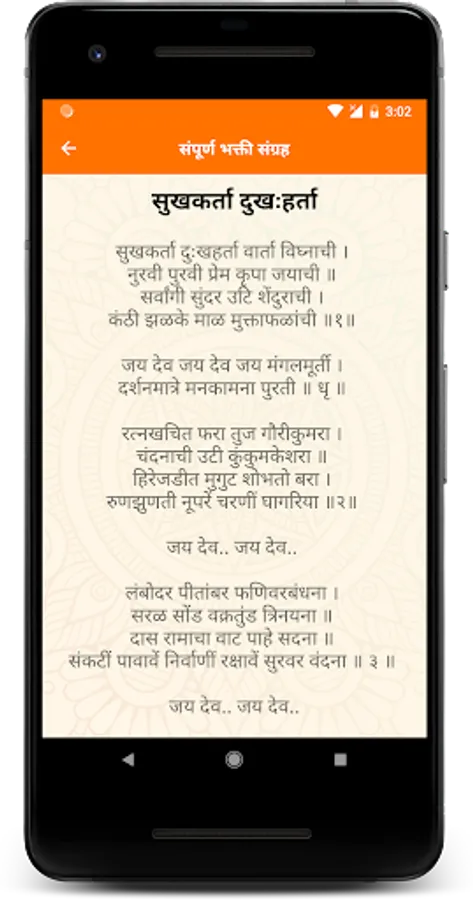 3:02
संपूर्ण भक्ती संग्रह
सुखकर्ता दुखःहर्ता
सुखकर्ता दुःखहर्ता वार्ता विघ्नाची ।
नुरवी पुरवी प्रेम कृपा जयाची ॥
सर्वांगी सुंदर उटि शेंदुराची ।
कंठी झळके माळ मुक्ताफळांची ॥१॥
जय देव जय देव जय मंगलमूर्ती ।
दर्शनमात्रे मनकामना पुरती ॥ धृ ॥
रत्नखचित फरा तुज गौरीकुमरा ।
चंदनाची उटी कुंकुमकेशरा ॥
हिरेजडीत मुगुट शोभतो बरा ।
रुणझुणती नूपरें चरणीं घागरिया ॥२॥
जय देव.. जय देव..
लंबोदर पीतांबर फणिवरबंधना ।
सरळ सोंड वक्रतुंड त्रिनयना ॥
दास रामाचा वाट पाहे सदना ॥
संकटीं पावावें निर्वाणीं रक्षावें सुरवर वंदना ॥ ३ ॥
जय देव.. जय देव..